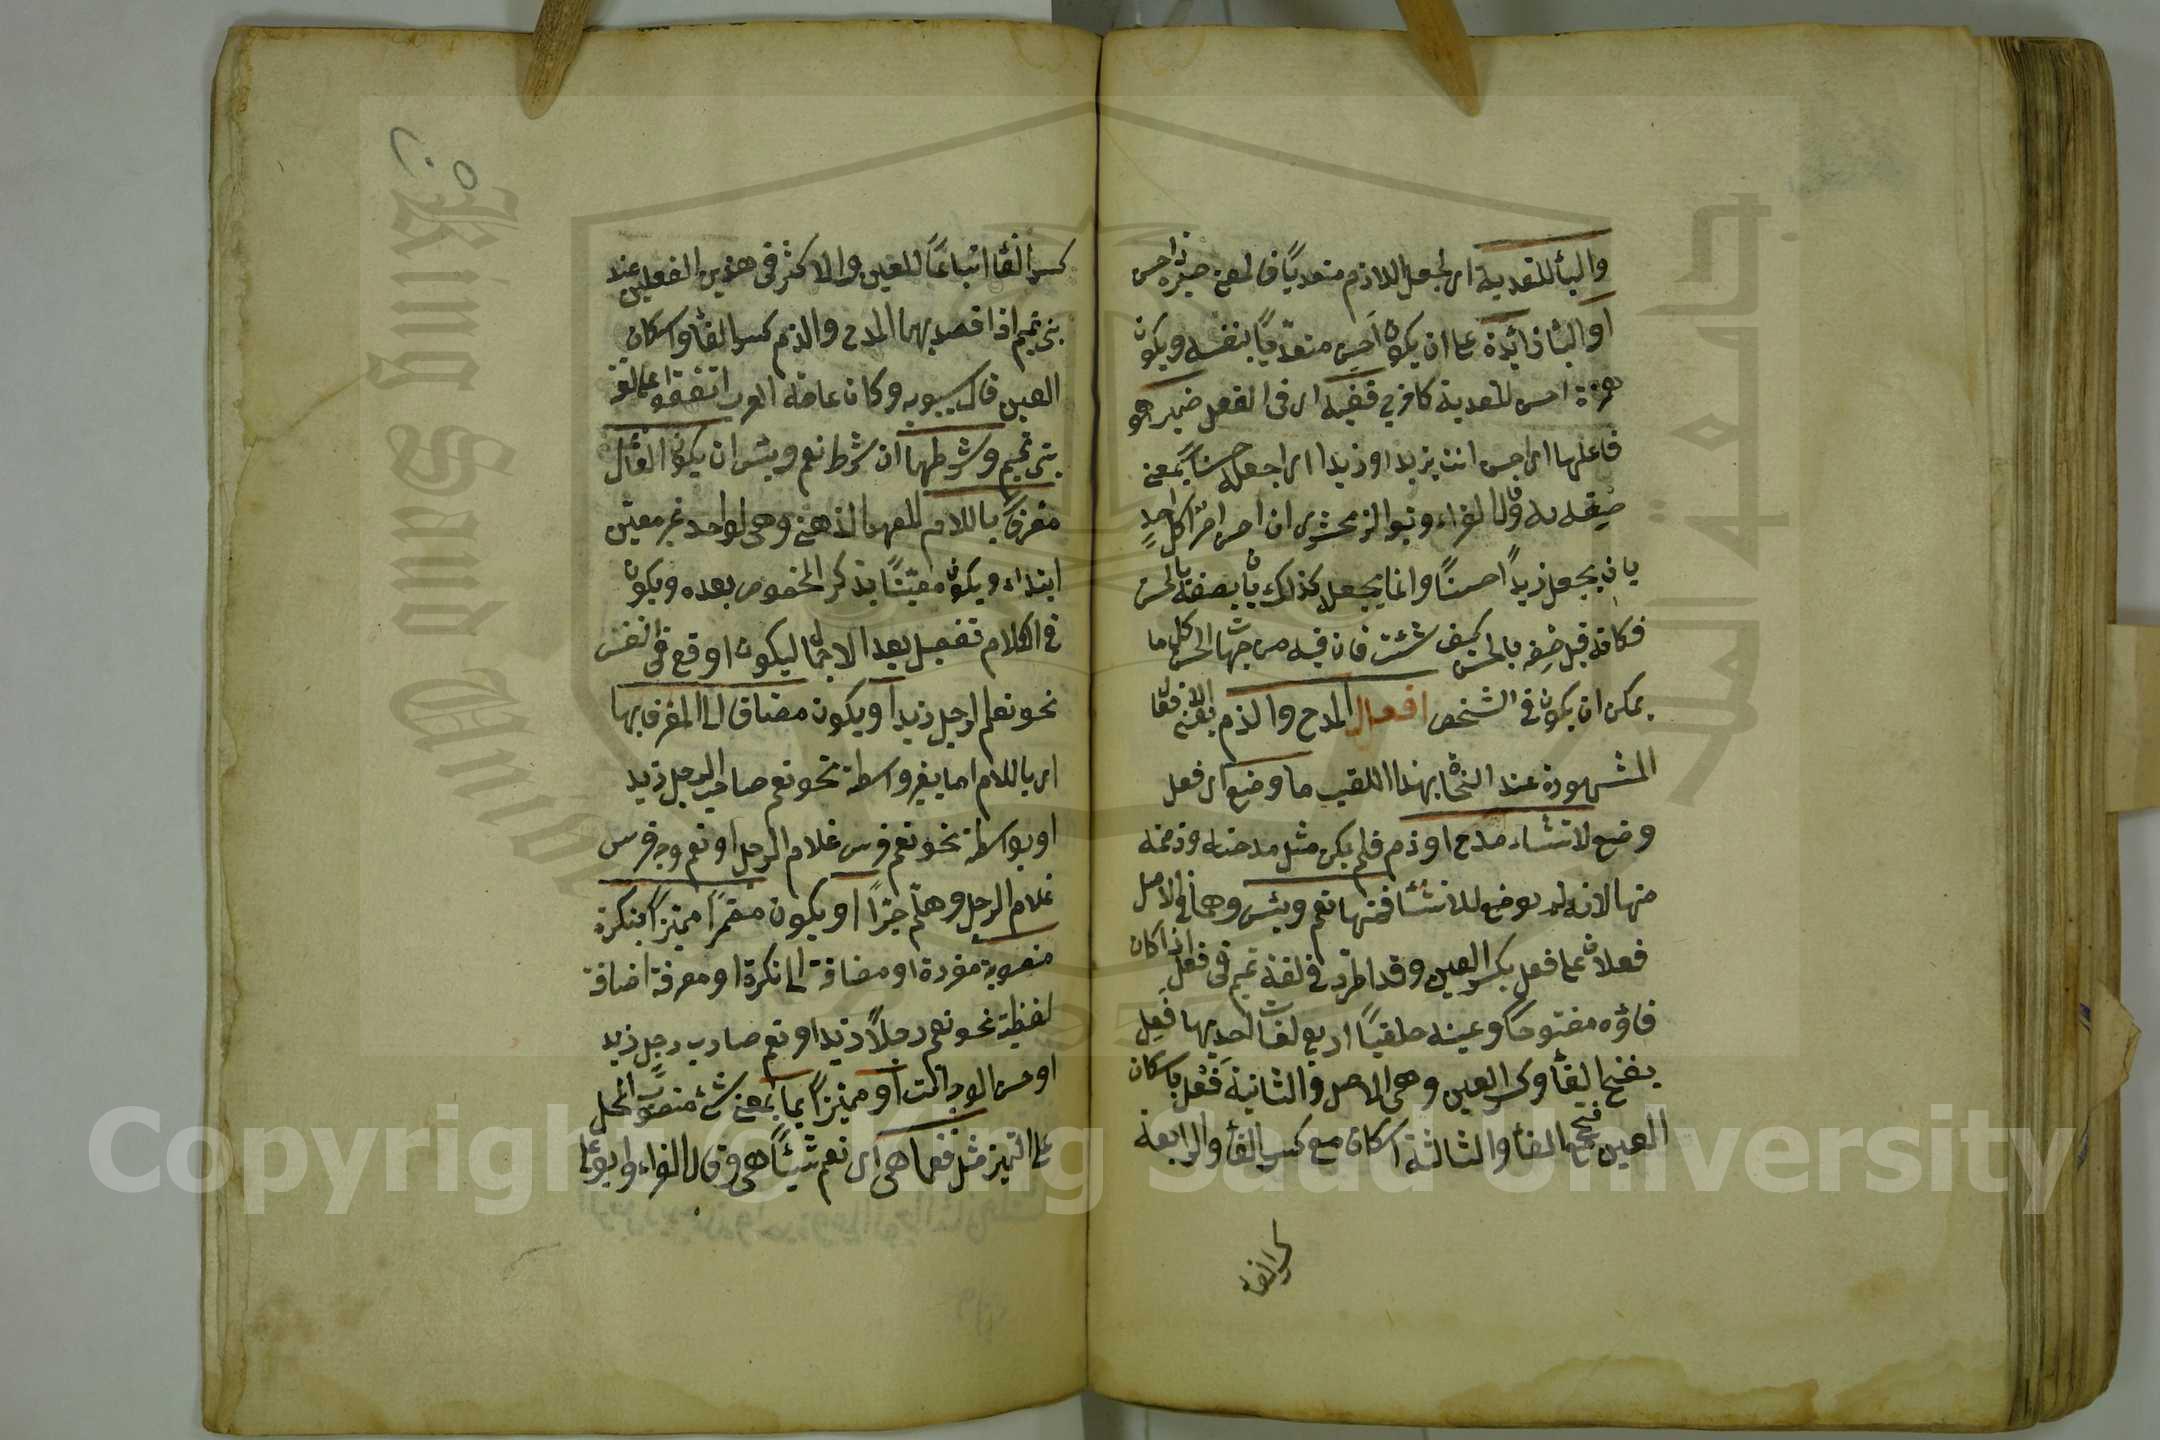 والباء للتعدية اى لجعل اللازم متعديا فالمعنى صيره ذا حسن
او الباء زائدة على ان يكون احسن متعديا بنفسه ويكون
همزة احسن للتعدية كافر فى ففيه اى فى الفعل ضمير هو
فاعلها اى احسن انت بزيد او زيدا اى اجعله حسنا بمعنى
صفه به وقال الفراء وتبعه الزمخشرى ان احسن امر لكل احد
بان يجعل زيدا حسنا وانما يجعله كذلك بان يصفه بالحسن
فكانه قيل صفه بالحسن كيف شئت فان فيه من جهات الحسن كل ما
يمكن ان يكون فى الشخص افعال المدح والذم يعنى الافعال
المشهورة عند النحاة بهذا اللقب ما وضع اى فعل
وضع لانشاء مدح او ذم فلم يكن مثل مدحته وذممته
منها لانه لم يوضع للانشاء فمنها نعم وبئس وهما فى الاصل
فعلان على فعل بكسر العين وقد اطرد فى لغة تميم فى فعل اذا كان
فاؤه مفتوحا وعينه حلقيا اربع لغات احديها فعل
بفتح الفاء وكسر العين وهى الاصل والثانية فعل باسكان
العين مع فتح الفاء والثالثة اسكان مع كسر الفاء والرابعة
كسر الفاء
كسر الفاء اتباعا للعين والاكثر فى هذين الفعلين عند
بنى تميم اذا قصد بهما المدح والذم كسر الفاء واسكان
العين قال سيبويه وكان عامة العرب اتفقوا على لغة
بنى تميم وشرطهما ان شرط نعم وبئس ان يكون الفاعل
معرفا باللام للعهد الذهنى وهى لواحد غير معين
ابتداء ويكون معينا بذكر المخصوص بعده ويكون
فى الكلام تفصيل بعد الاجمال ليكون اوقع فى النفس
نحو نعم الرجل زيد او يكون مضاقا الى المعرف بها
اى باللام اما بغير واسطة نحو نعم صاحب الرجل زيد
او بواسطة نحو نعم فرس غلام الرجل او نعم وجه فرس
غلام الرجل وهلم جرا او يكون مضمرا مميزا بنكرة
منصوبة مفردة او مضافة الى نكرة او معرفة اضافة
لفظية نحو نعم رجلا زيد او نعم ضارب رجل زيد
او حسن الوجه انت او مميزا بما بمعنى شئ منصوب المحل
على التميز مثل فنعما هى اى نعم شيئا هى وقال الفراء وابو على
King Saud University
جامعة الملك سعود
1957
Copyright © King Saud University